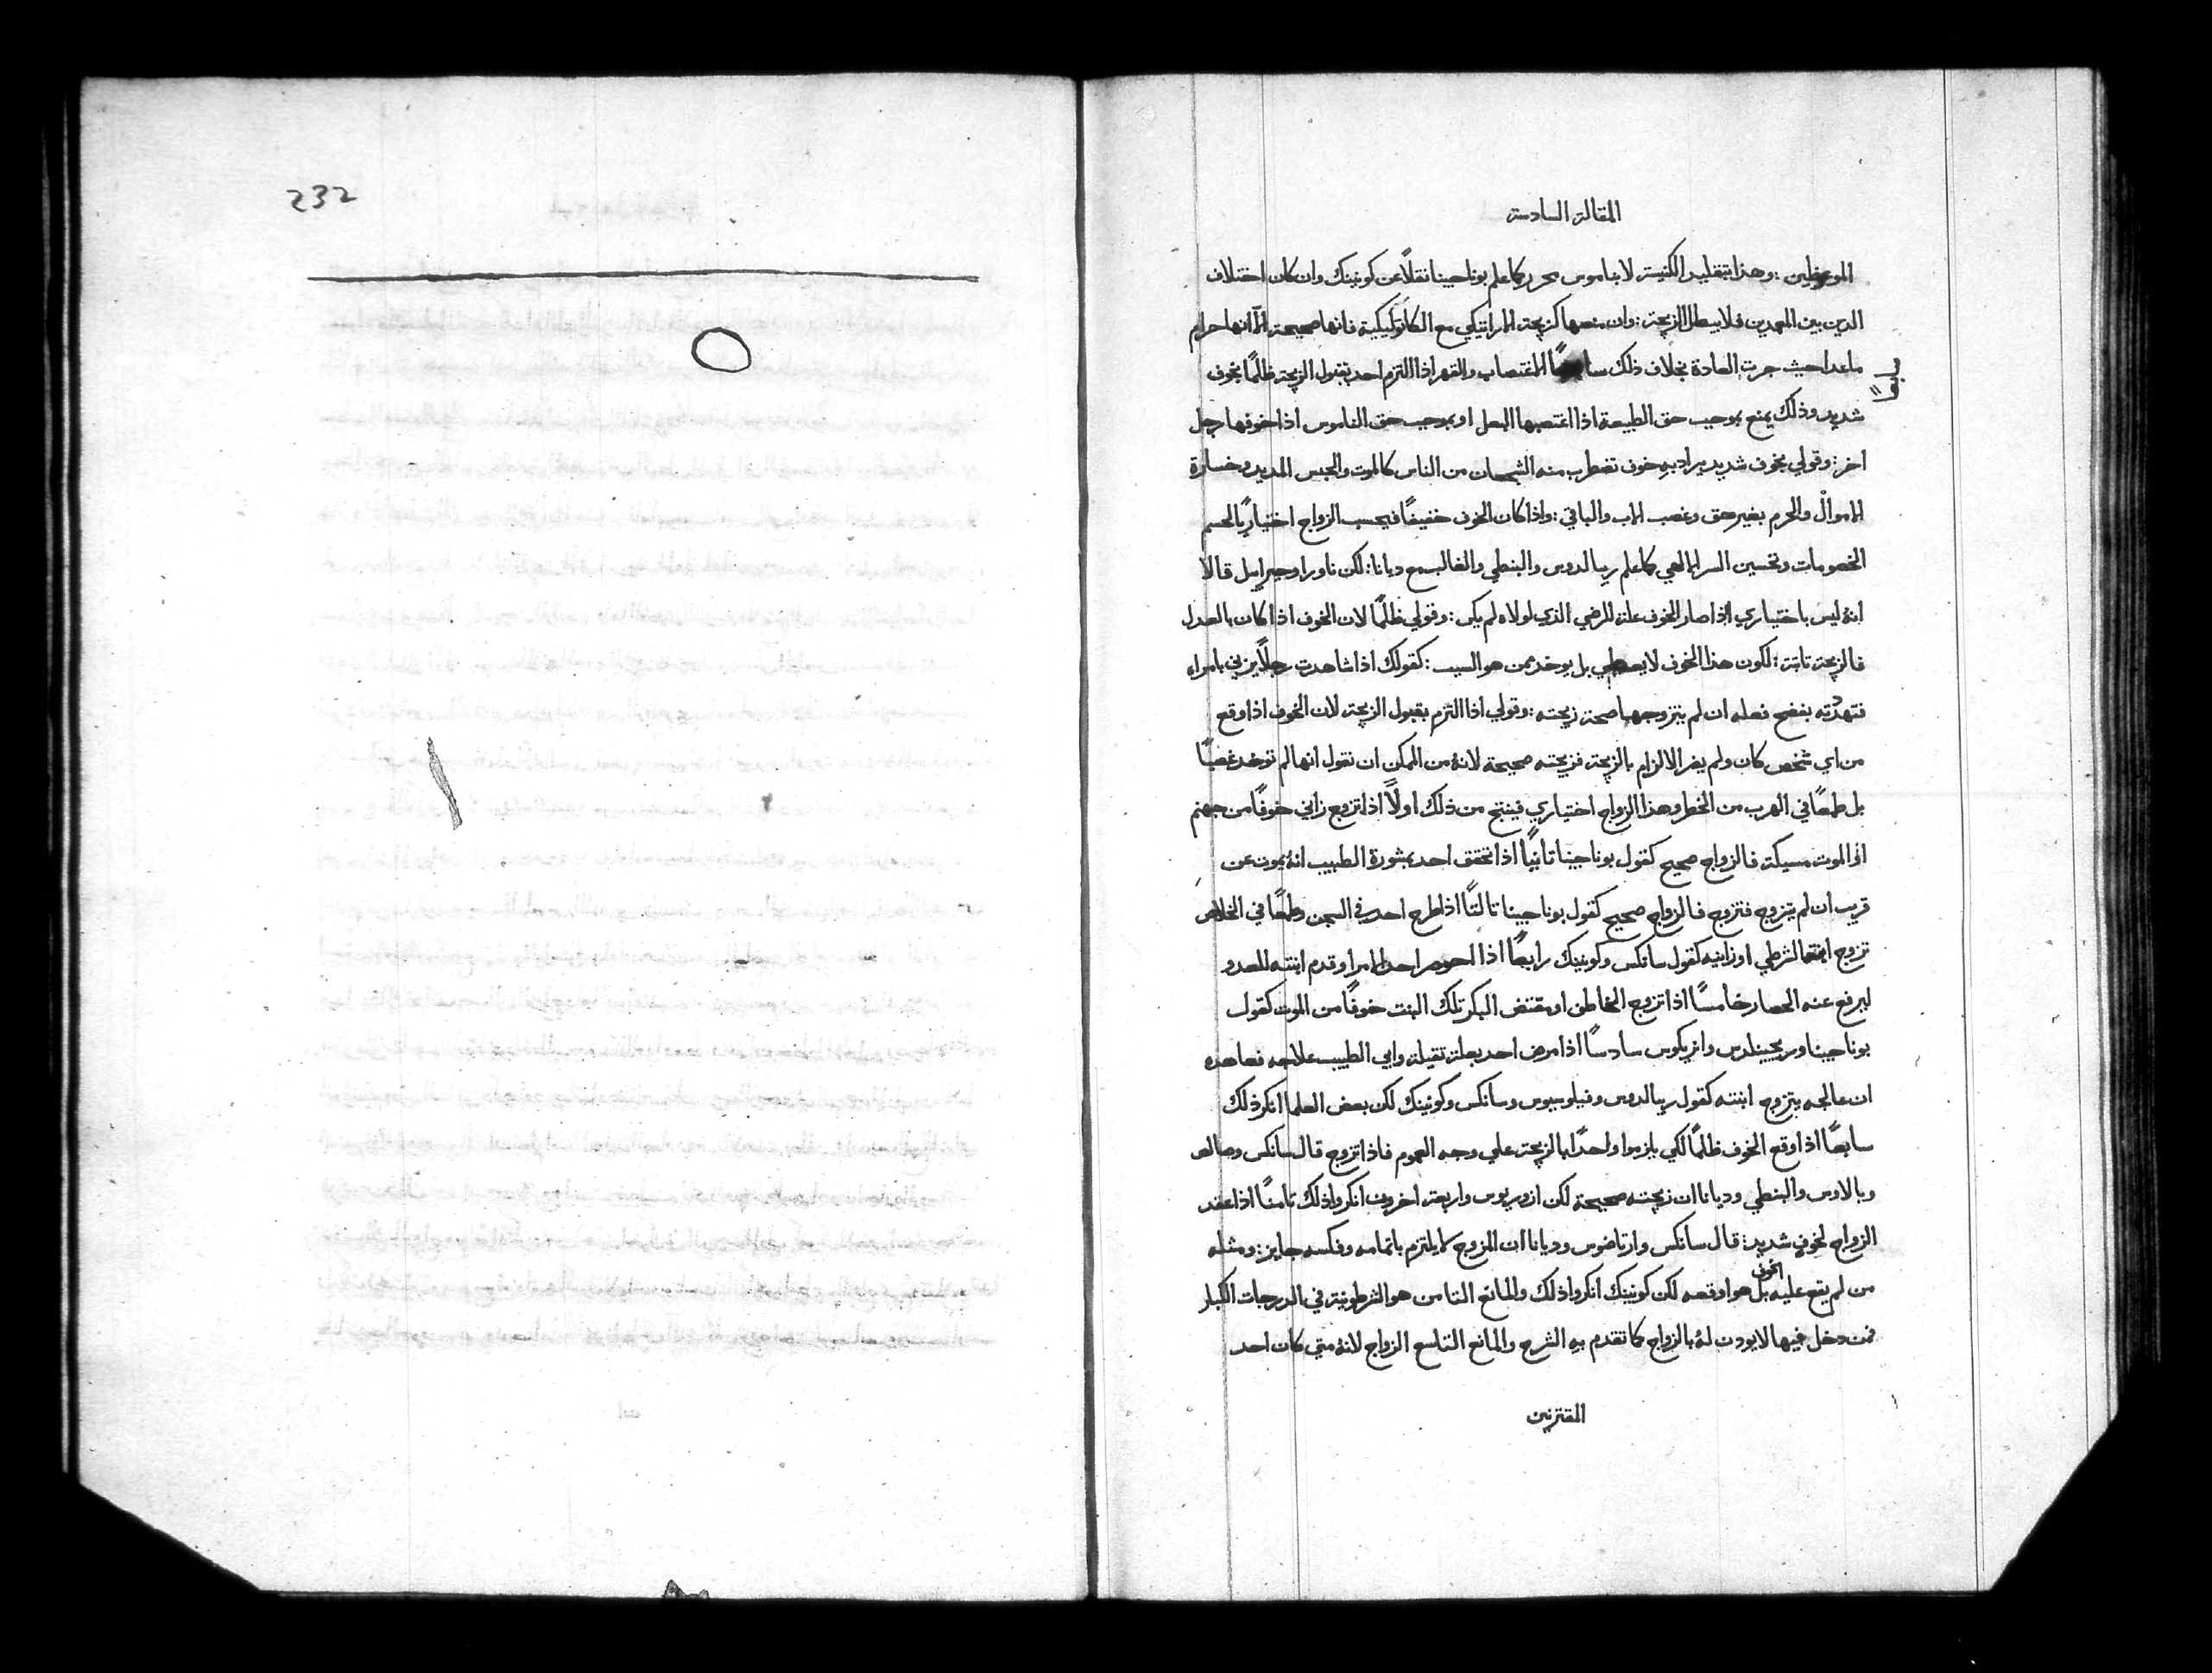 المقالة السادسة
الموعوظين: وهذا بتقليد الكنيسة لا بناموس محرر كما علم بوناجينا نقلًا عن كونينك وان كان اختلاف
الدين بين المعمدين فلا يبطل الزيجة: وان منعها كزيجة الاراتيكي مع الكاتوليكية فانها صحيحة الّا انها حرام
ماعدا حيث جرت العادة بخلاف ذلك سابعًا الاغتصاب والقهر اذا التزم احد بقبول الزيجة ظلمًا بخوف
شديد وذلك يمنع بموجب حق الطبيعة اذا اغتصبها البعل او بموجب حق الناموس اذا خوفها رجل
اخر: وقولي بخوف شديد يراد به خوف تضطرب منه الشجعان من الناس كالموت والحبس المديد وخسارة
الاموال والحرم بغير حق وغضب الاب والباقي: واذا كان الخوف خفيفًا فيحسب الزواج اختياريًا لحسم
الخصومات وتحسين السر الالهي كما علم ريبالدوس والبنطي والغالب مع ديانا: لكن ناورا وجبرايل قالا
انهُ ليس باختياري اذا صار الخوف علة للرضي الذي لولاه لم يكن: وقولي ظلمًا لان الخوف اذا كان بالعدل
فالزيجة تابتة: لكون هذا الخوف لا يعطي بل يوخد ممن هو السبب: كقولك اذا شاهدت رجلًا يزني بامراه
فتهددته بفضح فعله ان لم يتزوجها صحة زيجته: وقولي اذا التزم بقبول الزيجة لان الخوف اذا وقع
من اي شخص كان ولم يضر الالزام بالزيجة فزيجته صحيحة لانهُ من الممكن ان نقول انها لم توخد غصبًا
بل طمعًا في الهرب من الخطر وهذا الزواج اختياري فينتج من ذلك اولًا اذا تزوج زاني خوفًا من جهنم
او الموت مسيكة فالزواج صحيح كقول بوناجينا تانيًا اذا تحقق احد بمشورة الطبيب انهُ يموت عن
قريب ان لم يتزوج فتزوج فالزواج صحيح كقول بوناجينا تالتًا اذا طرح احد في السجن وطمعًا في الخلاص
تزوج ابنة الشرطي او زانيه كقول سانكس وكونينك رابعًا اذا احوصر احد الامرا وقدم ابنته للعدو
ليرفع عنه الحصار خامسًا اذا تزوج الخاطن او مفتض البكر تلك البنت خوفًا من الموت كقول
بوناجينا وريجينلدس وانريكوس سادسًا اذا مرض احد بعلة تقيلة وابي الطبيب علاجه فعاهده
ان عالجه يتزوج ابنته كقول ريبالدوس وفيلوسيوس وسانكس وكونينك لكن بعض العلما انكر ذلك
سابعًا اذا وقع الخوف ظلمًا لكي يلزموا واحدًا بالزيجة علي وجه العموم فاذا تزوج قال سانكس وصالص
وبالاوس والبنطي وديانا ان زيجته صحيحة لكن ازوريوس واربعة اخرون انكروا ذلك تامنًا اذا عقد
الزواج لخوف شديد: قال سانكس وارتاضوس وديانا ان المزوج لا يلتزم باتمامه وفكسه جايز: ومثله
من لم يقع عليه الخوف بل هو اوقعه لكن كونينك انكروا ذلك والمانع التامن هو الشرطونية في الدرجات الكبار
فمن دخل فيها لا يودن لهُ بالزواج كما تقدم به الشرح والمانع التاسع الزواج لانهُ متي كان احد
المقترنين
232